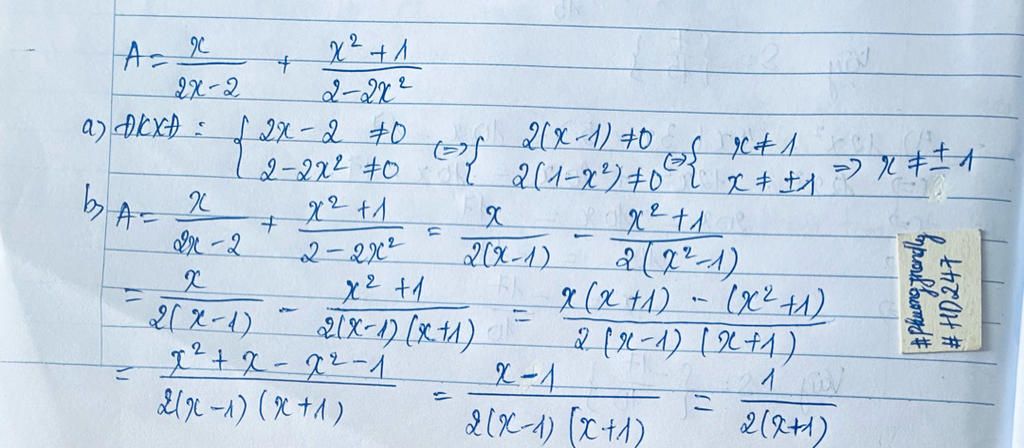 A = x/(2x-2) + (x² + 1)/(2-2x²)
a) ĐKXĐ : { 2x - 2 ≠ 0 ; 2 - 2x² ≠ 0 (=> { 2(x-1) ≠ 0 ; 2(1-x²) ≠ 0 (=> { x ≠ 1 ; x ≠ ±1 => x ≠ ± 1
b) A = x/(2x-2) + (x² + 1)/(2-2x²) = x/(2(x-1)) - (x² + 1)/(2(x²-1))
= x/(2(x-1)) - (x² + 1)/(2(x-1)(x+1)) = (x(x+1) - (x²+1))/(2(x-1)(x+1))
= (x² + x - x² - 1)/(2(x-1)(x+1)) = (x-1)/(2(x-1)(x+1)) = 1/(2(x+1))
# HD247